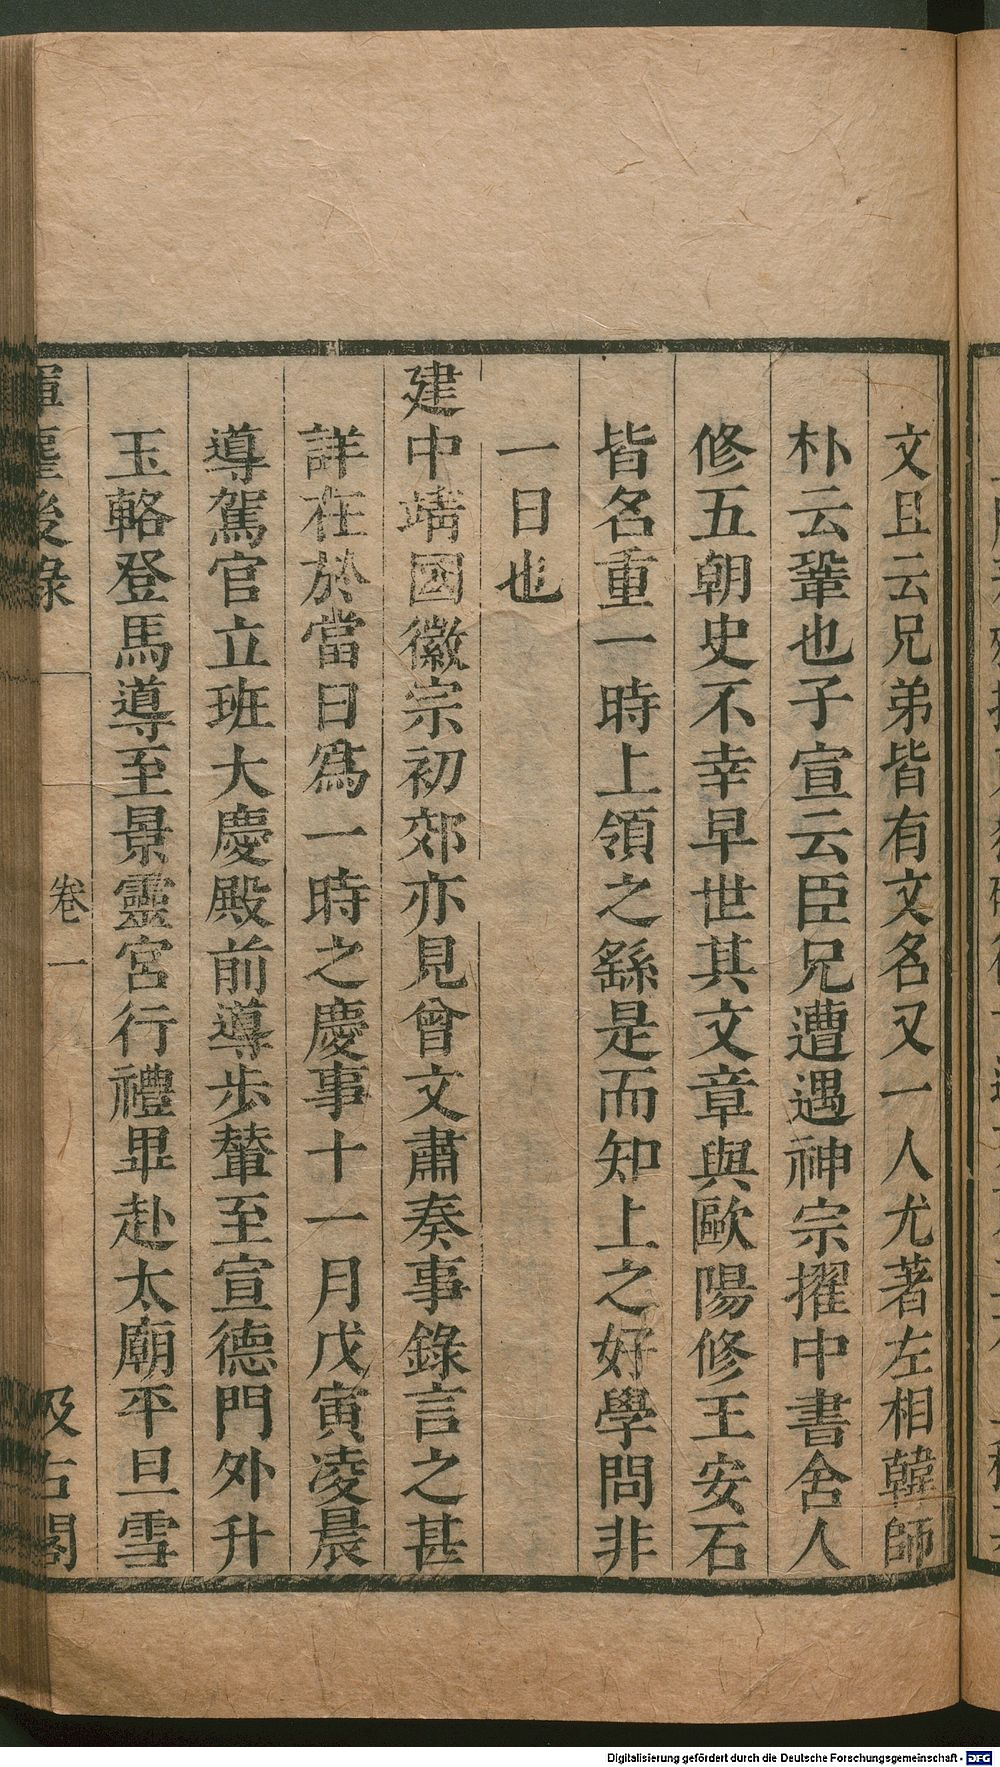 文且云兄弟皆有文名又一人尤著左相韓師
朴云鞏也子宣云臣兄遭遇神宗擢中書舍人
修五朝史不幸早世其文章與歐陽修王安石
皆名重一時上領之繇是而知上之好學問非
一日也
建中靖國徽宗初郊亦見曾文肅奏事錄言之甚
詳在於當日爲一時之慶事十一月戊寅凌晨
導駕官立班大慶殿前導步輦至宣德門外升
玉輅登馬導至景靈宮行禮畢赴太廟平旦雪
揮麈後錄
卷一
汲古閣
Digitalisierung gefördert durch die Deutsche Forschungsgemeinschaft - DFG